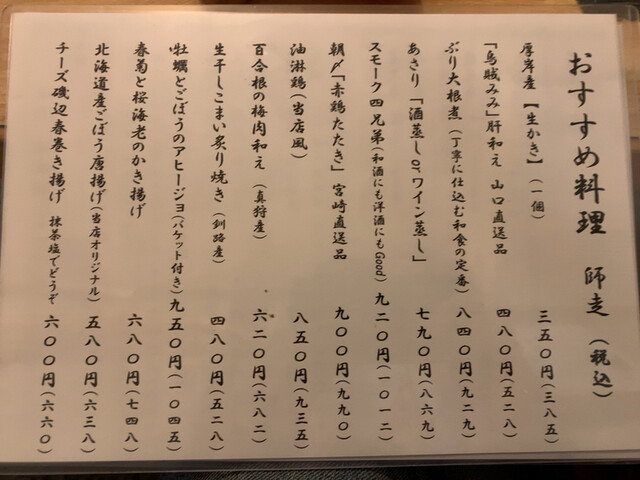 おすすめ料理 師走 (税込)
厚岸産 【生かき】 (一個) 三五〇円(三八五)
「烏賊みみ」肝和え 山口直送品 四八〇円(五二八)
ぶり大根煮 (丁寧に仕込む和食の定番) 八四〇円(九二九)
あさり 「酒蒸しorワイン蒸し」 七九〇円(八六九)
スモーク四兄弟(和酒にも洋酒にもGood) 九二〇円(一〇一二)
朝〆「赤鶏たたき」 宮崎直送品 九〇〇円(九九〇)
油淋鶏(当店風) 八五〇円(九三五)
百合根の梅肉和え (真狩産) 六二〇円(六八二)
生干しこまい炙り焼き (釧路産) 四八〇円(五二八)
牡蠣とごぼうのアヒージョ(バケット付き) 九五〇円(一〇四五)
春菊と桜海老のかき揚げ 六八〇円(七四八)
北海道産ごぼう唐揚げ(当店オリジナル) 五八〇円(六三八)
チーズ磯辺春巻き揚げ 抹茶塩でどうぞ 六〇〇円(六六〇)